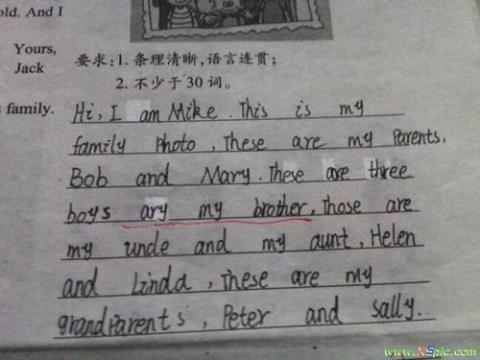 old. And I
Yours,
Jack
要求:1. 条理清晰,语言连贯;
2. 不少于 30 词。
family.
Hi, I am Mike. This is my
family Photo, These are my Parents.
Bob and Mary. These are three
boys ary my brother, Those are
my uncle and my aunt, Helen
and Linda, These are my
grandParents, Peter and Sally.
www.XSpic.com